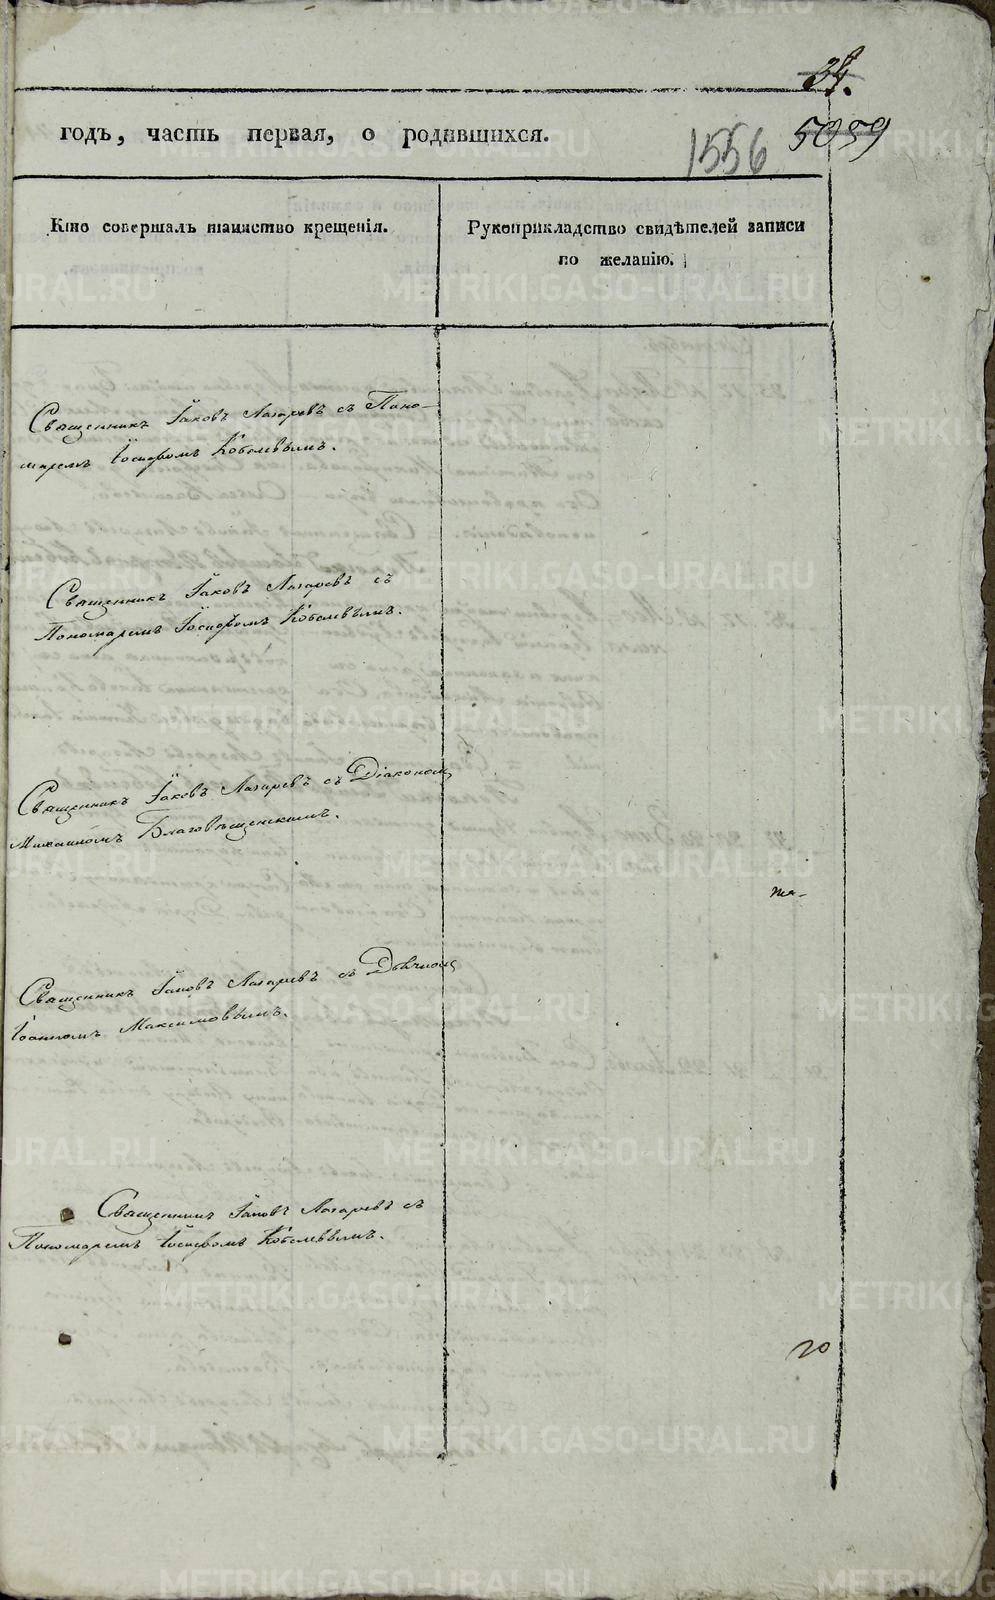 34.
годъ, часть первая, о родившихся.
1556
5059
Кто совершалъ таинство крещенія.
Рукоприкладство свидѣтелей записи
по желанію.
Священникъ Іаковъ Лазаревъ съ Поно-
маремъ Іосифомъ Кобелевымъ.
Священникъ Іаковъ Лазаревъ съ
Пономаремъ Іосифомъ Кобелевымъ.
Священникъ Іаковъ Лазаревъ съ Діакономъ
Михаиломъ Благовѣщенскимъ.
Священникъ Іаковъ Лазаревъ съ Дьячкомъ
Іоанномъ Максимовымъ.
Священникъ Іаковъ Лазаревъ съ
Пономаремъ Іосифомъ Кобелевымъ.
METRIKI.GASO-URAL.RU